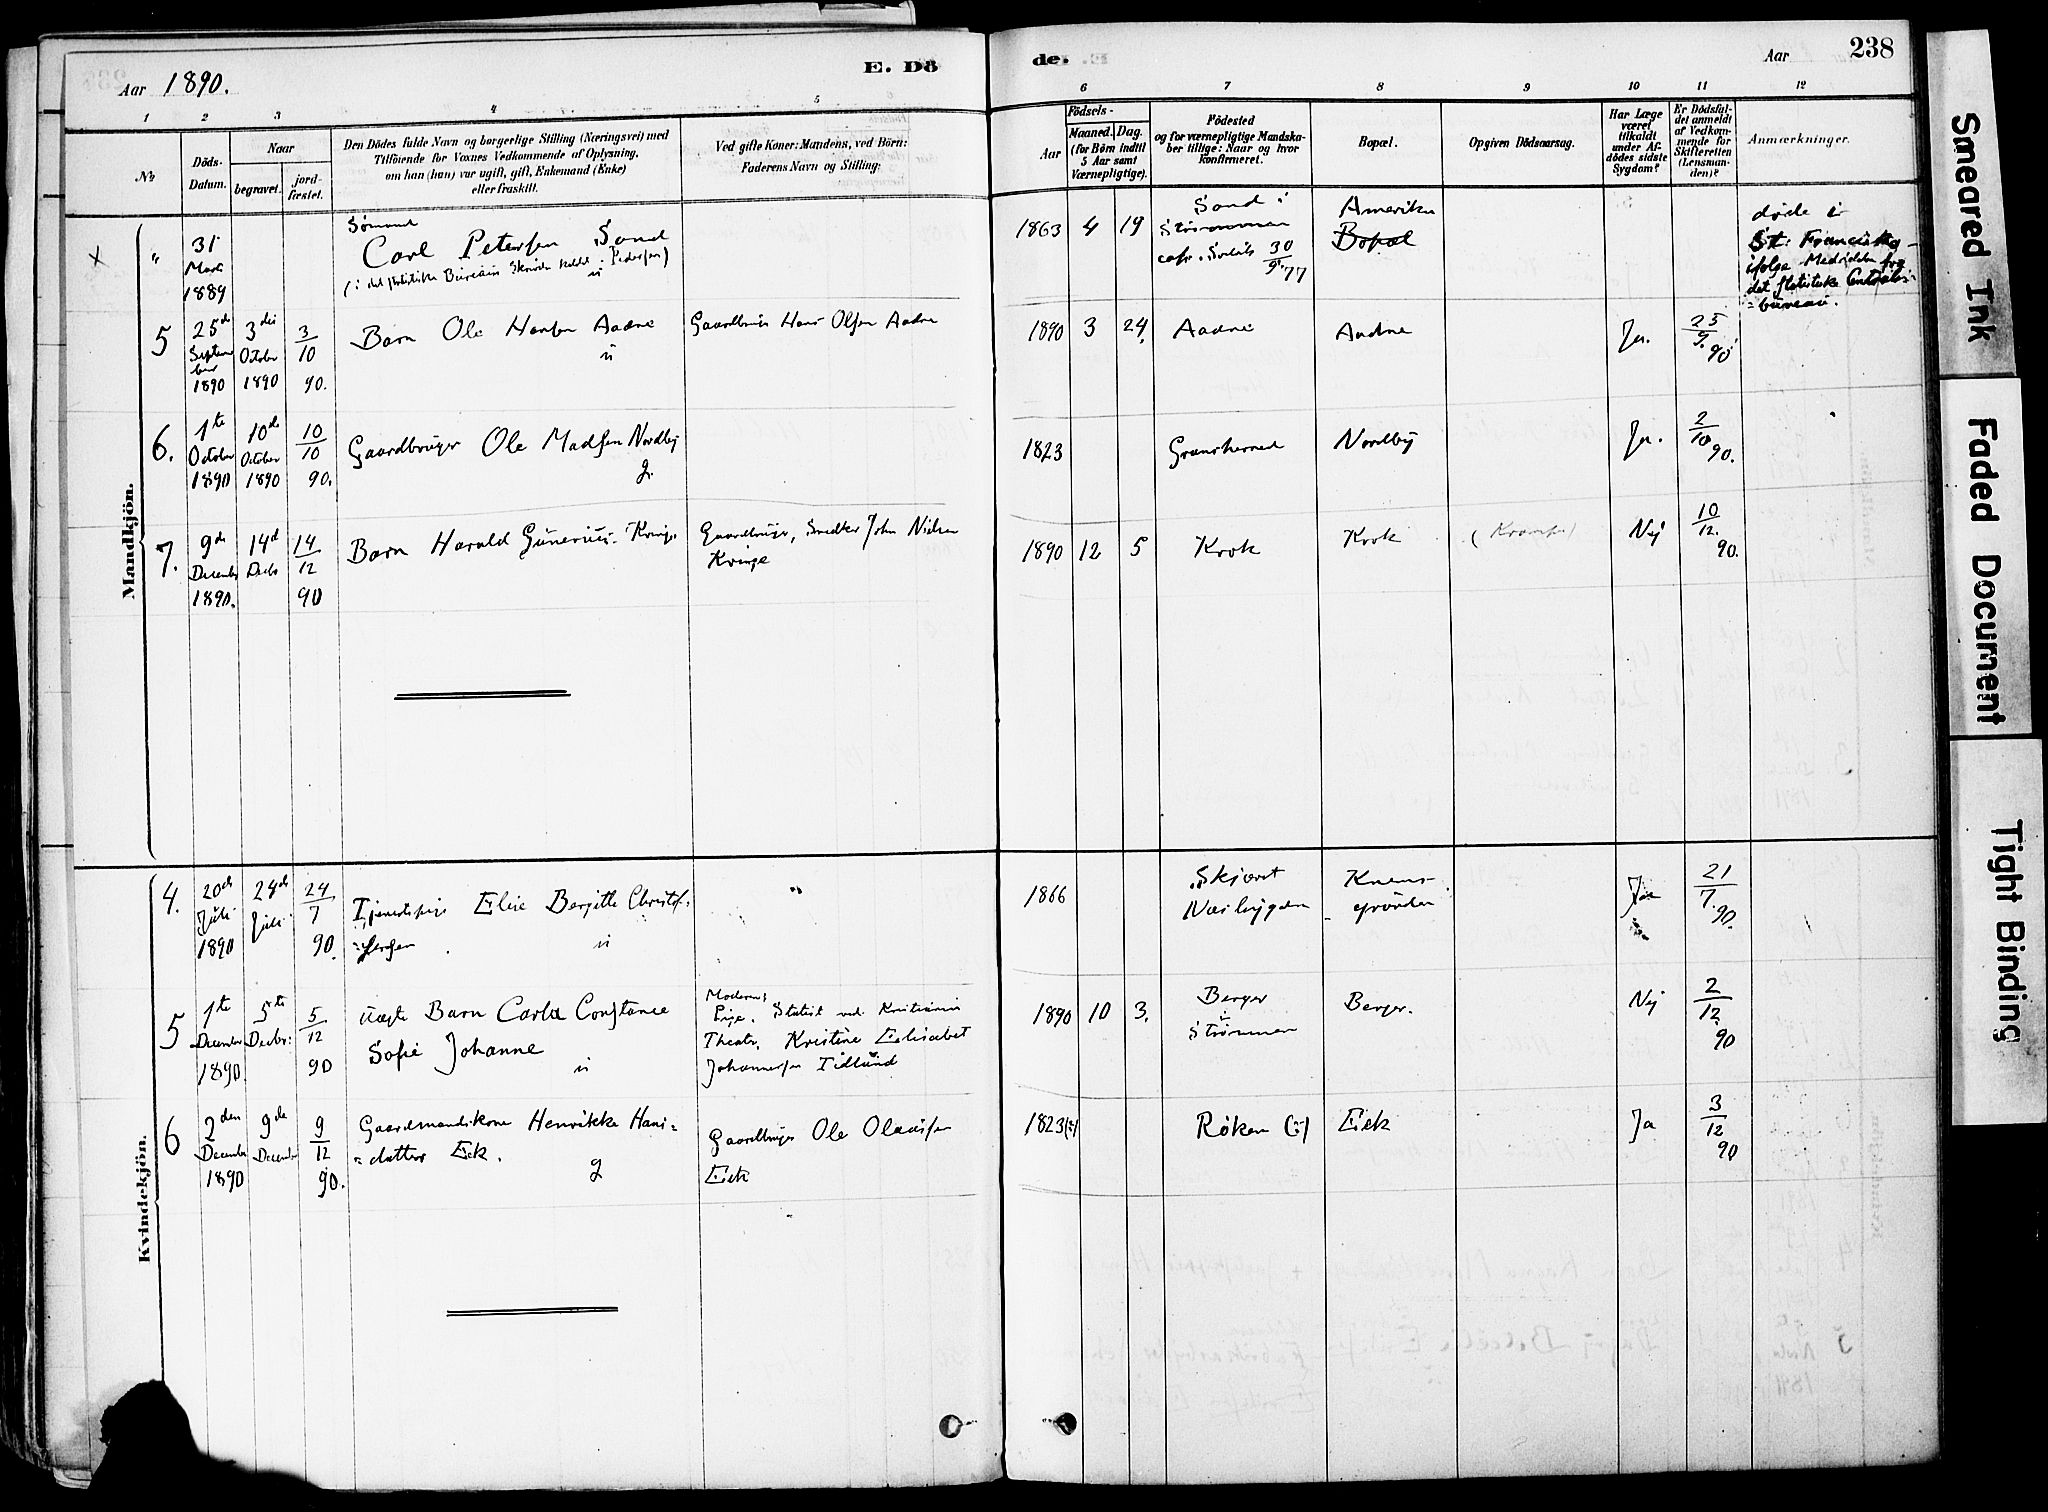 E. Dö
Aar 1890.
1
2
3
4
5
№
Döds-
Datum.
Naar
begravet.
jord-
fæstet.
Den Dödes fulde Navn og borgerlige Stilling (Næringsvei) med
Tilföiende for Voxnes Vedkommende af Oplysning,
om han (hun) var ugift, gift, Enkemand (Enke)
eller fraskilt.
Ved gifte Koner: Mandens, ved Börn:
Faderens Navn og Stilling.
de.
Aar
238
6
7
8
9
10
11
12
Födsels-
Aar
Maaned. Dag.
(for Börn indtil
5 Aar samt
Værnepligtige).
Födested
og for værnepligtige Mandska-
ber tillige: Naar og hvor
konfirmeret.
Bopæl.
Opgiven Dödsaarsag.
Har Læge
været
tilkaldt
under Af-
dödes sidste
Sygdom?
Er Dödsfal-
det anmeldt
af Vedkom-
mende for
Skifteretten
(Lensman-
den)?
Anmærkninger.
Mandkjön.
x
"
31
Mars
1889
Sømand
Carl Petersen Sand
(: det statistiske Bureaus Skrivelse kaldet Pedersen)
u
1863 4 19
Sand i
Strømmen
30/9 77
Amerika
Bopæl
døde i
St. Francisko
ifølge Meddelelse fra
det statistiske Central-
=bureau.
5
25de
Septem
ber
1890
3die
October
1890
3/10
90.
Barn Ole Hansen Aadne
u
Gaardbruger Hans Olsen Aadne
1890 3 24.
Aadne
Aadne
Ja.
25/9. 90
6.
1te
October
1890
10de
October
1890
10/10
90.
Gaardbruger Ole Madsen Nordby
g.
1823
Nordby
Ja.
2/10 90.
7.
9de
December
1890.
14de
Decbr
14/12
90
Barn Harald Gunerius Kvinge
Gaardbruger, Snedker John Nielsen
Kvinge
1890 12 5
Krok
Krok
(Krampe)
Nej
10/12. 90.
Kvindekjön.
4.
20de
Juli
1890
24de
Juli
24/7
90.
Tjenestepige Elise Bergitte Christof-
=fersen
u
"
1866
Skjøret
Næsbygden
Ja
21/7. 90.
5
1te
December
1890.
5te
Decbr:
5/12
90
uægte Barn Carla Constance
Sofie Johanne
u
Moderen:
Pige, Statist ved Kristiania
Theater, Kristine Elisabet
Johannesen Tidlund
1890 10 3.
Berger
i
Strømmen
Berger.
Nej
2/12. 90
6
2den
December
1890
9de
December
9/12
90.
Gaardmandskone Henrikke Hans=
=datter Eek.
g
Gaardbruger Ole Olausen
Eek
1823(?)
Røken (?)
Eek
Ja
3/12 90
Smeared Ink
Faded Document
Tight Binding